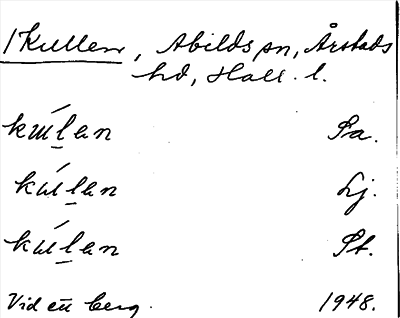 /Kullen, Abilds sn, Årstads
hd, Hall. l.
kúlan Sa.
kúlan Lj.
kúlan St.
Vid ett berg. 1948.